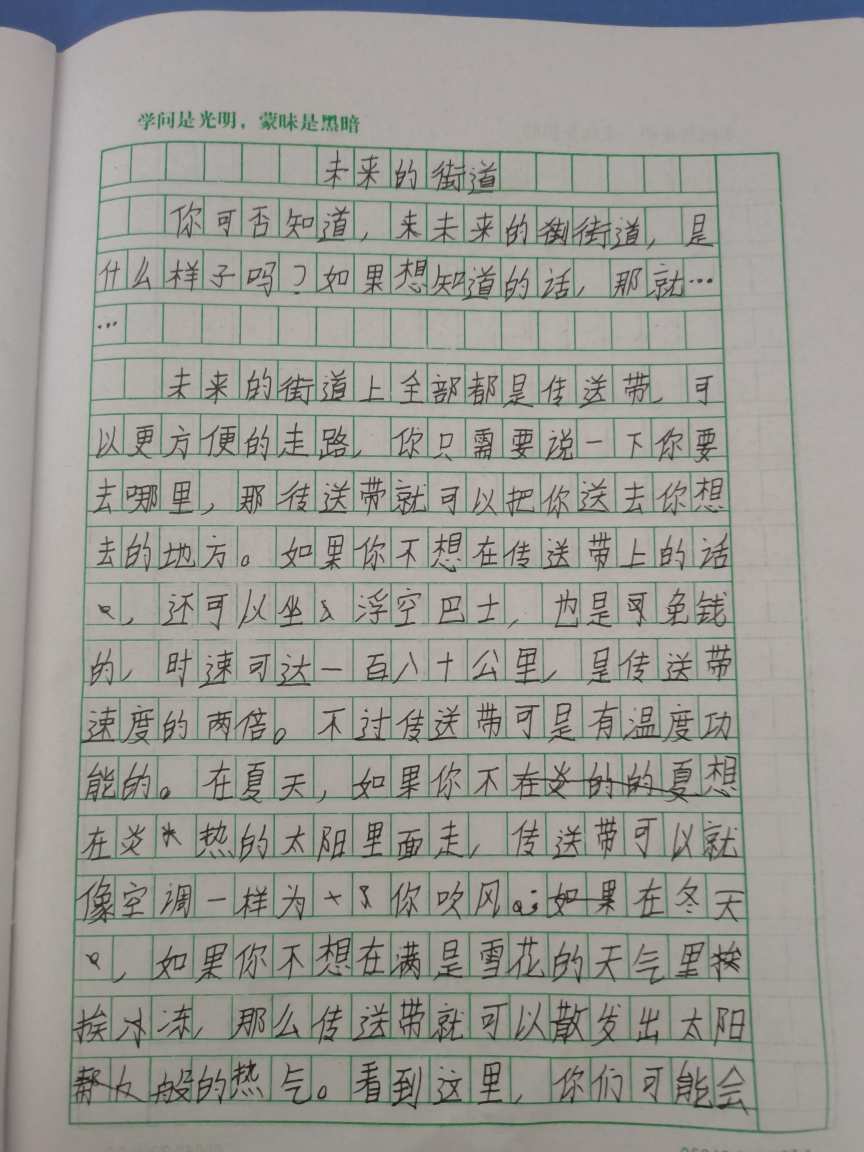 学问是光明，蒙昧是黑暗
未来的街道
你可否知道，未来的街道，是
什么样子吗？如果想知道的话，那就…
…
未来的街道上全部都是传送带，可
以更方便的走路，你只需要说一下你要
去哪里，那传送带就可以把你送去你想
去的地方。如果你不想在传送带上的话
，还可以坐浮空巴士，也是免钱
的，时速可达一百八十公里，是传送带
速度的两倍。不过传送带可是有温度功
能的。在夏天，如果你不想
在炎热的太阳里面走，传送带可以就
像空调一样为你吹风；在冬天
，如果你不想在满是雪花的天气里
挨冰冻，那么传送带就可以散发出太阳
般的热气。看到这里，你们可能会